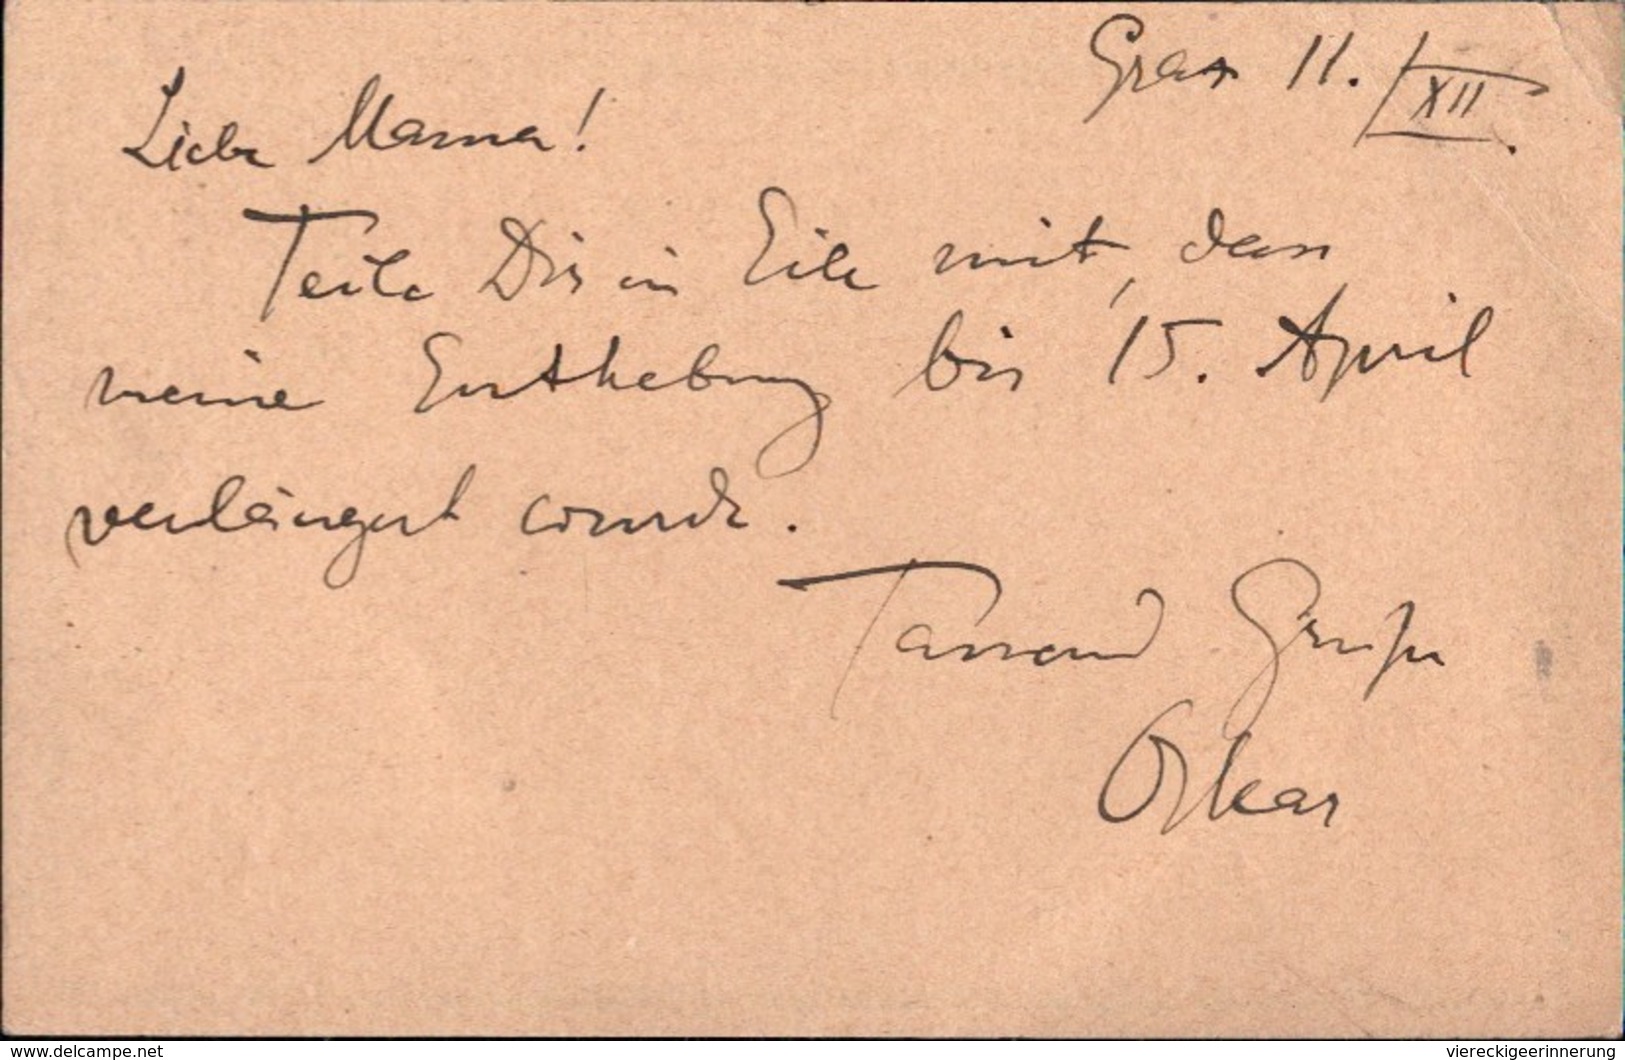 Graz 11./XII.
Liebe Mama!
Teile Dir in Eile mit, dass
meine Enthebung bis 15. April
verlängert wurde.
Tausend Grüße
Oskar
www.delcampe.net
viereckigeerinnerung